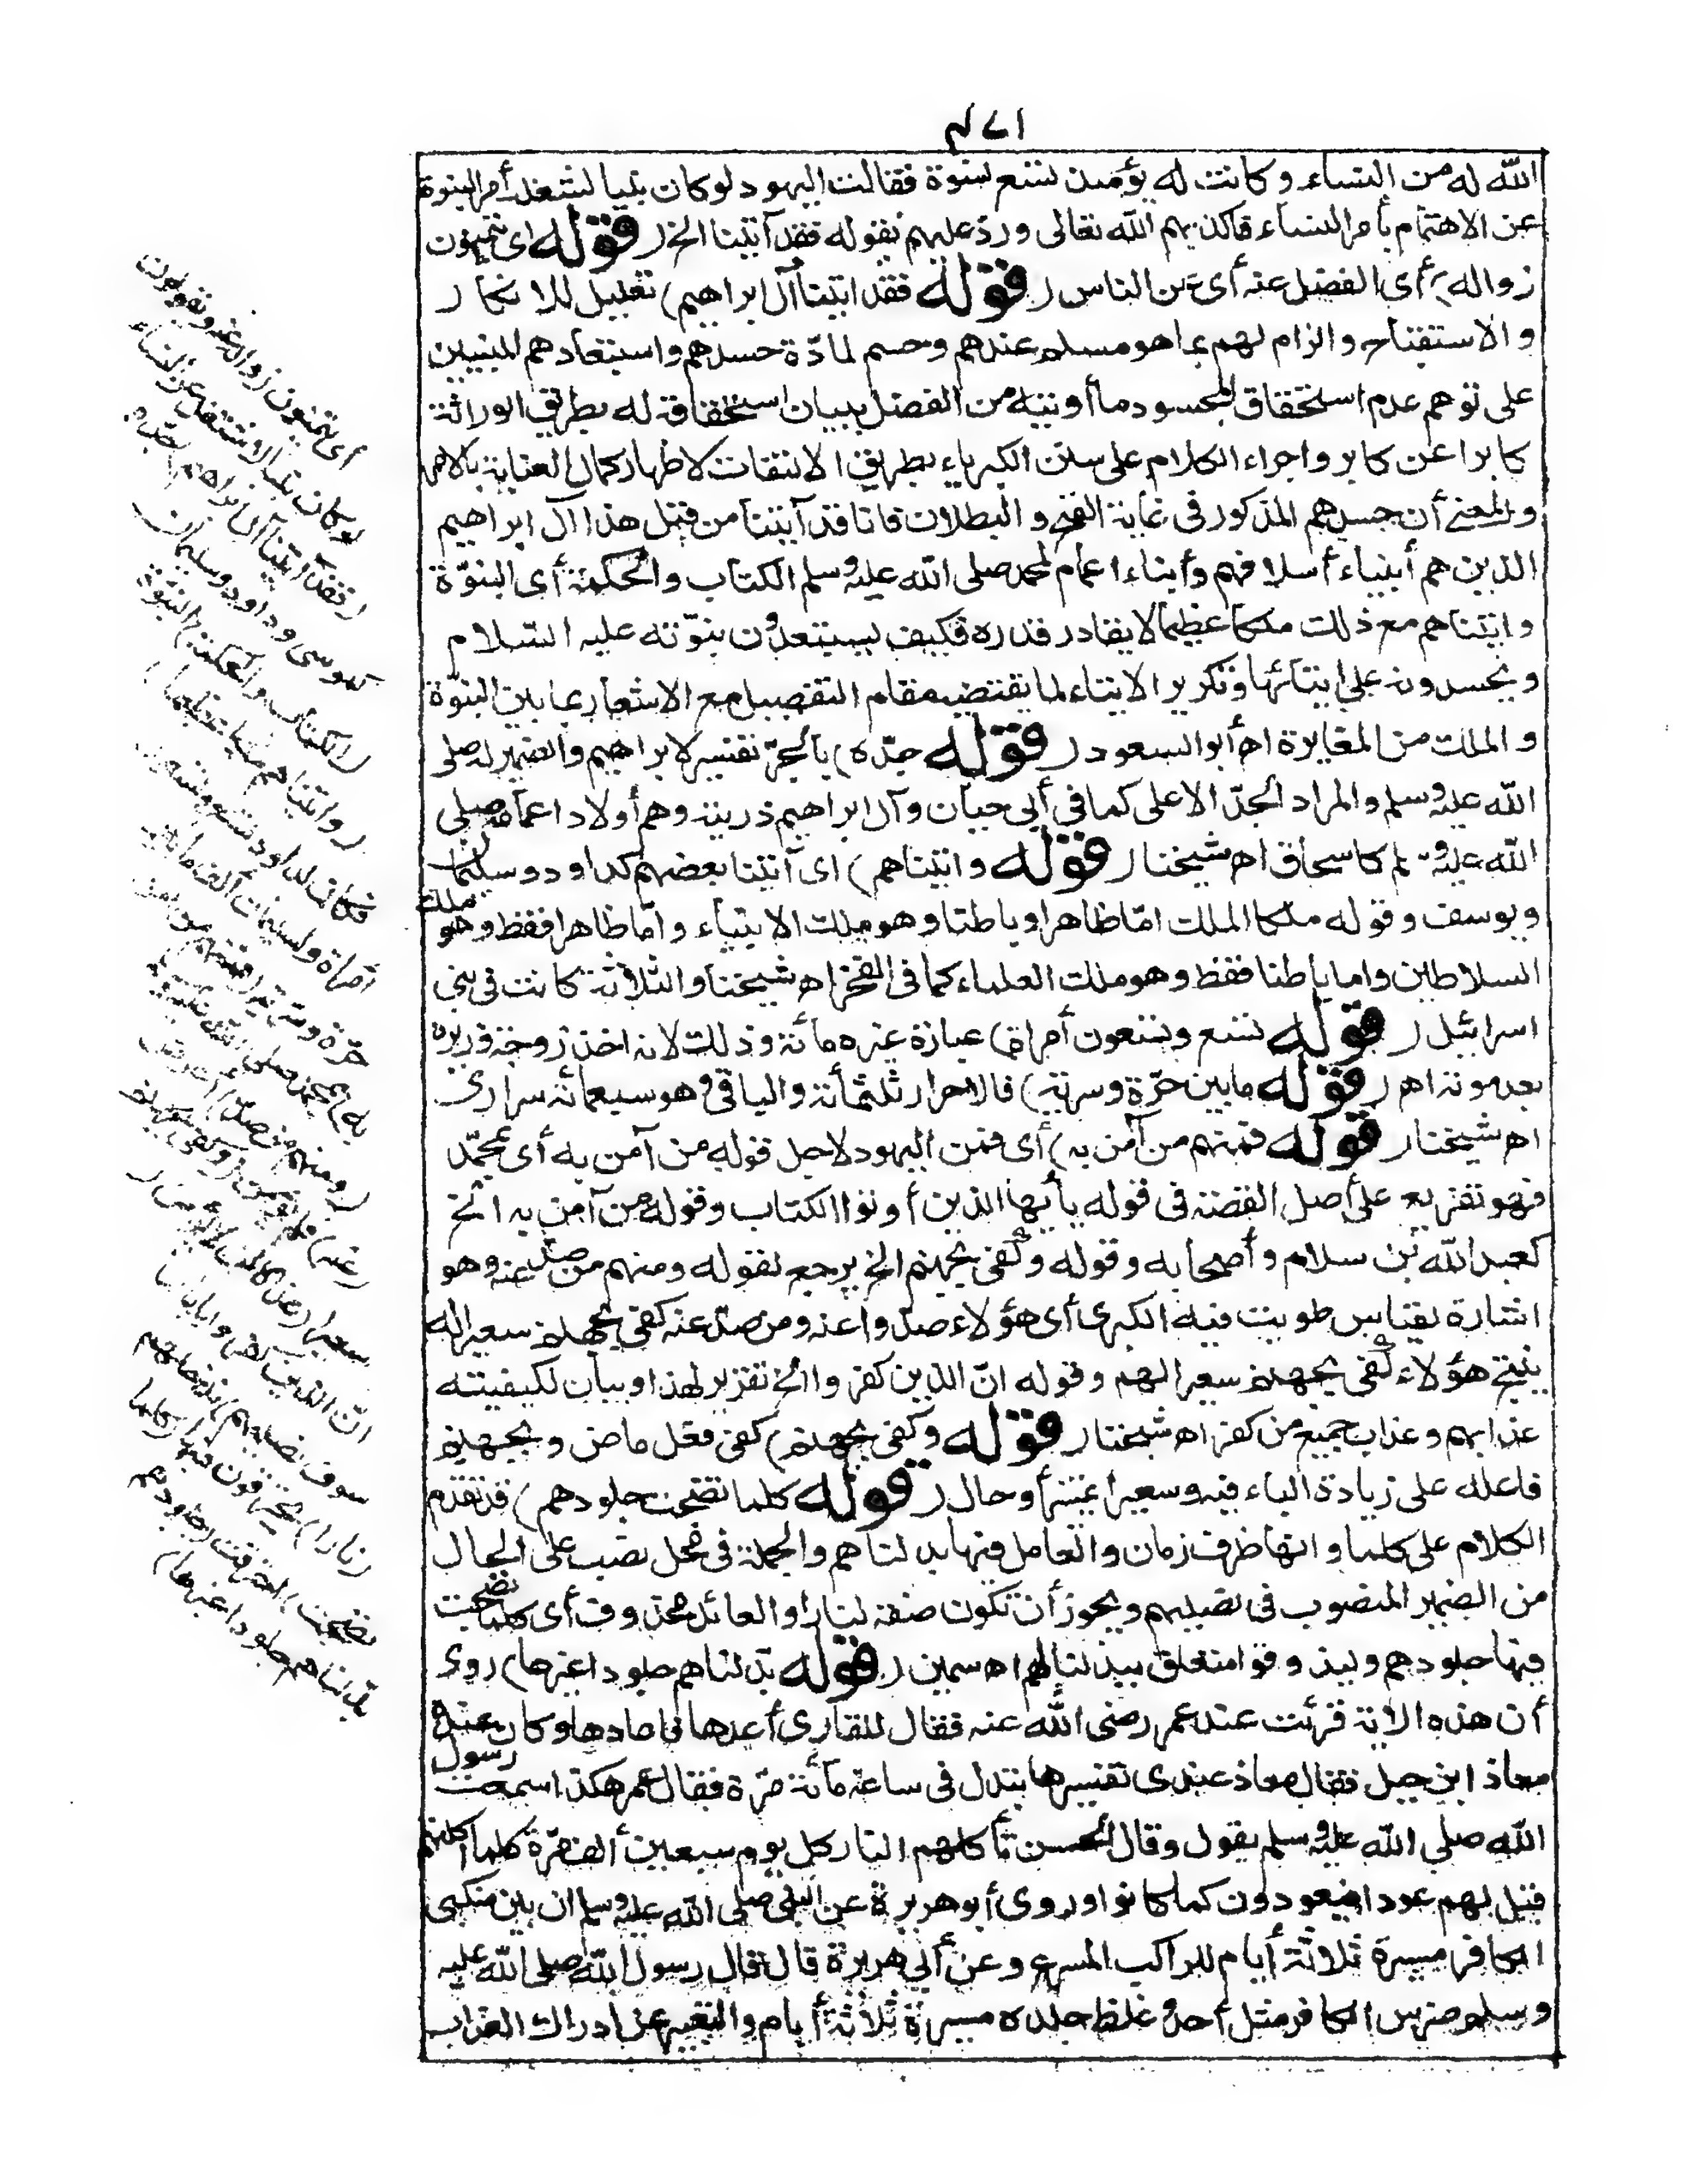 ٤٧١
الله له من النساء وكانت له يومئذ تسع نسوة فقالت اليهود لو كان نبيا لشغله أمر النبوة
عن الاهتمام بأمر النساء فاكذبهم الله تعالى وردّ عليهم بقوله فقد آتينا الخ ( قوله اى يتمنون
زواله ) أى الفضل عنه أى عن الناس ( قوله فقد اتينا آل ابراهيم ) تعليل للانكار
والاستقباح والزام لهم بما هو مسلم عندهم وحسم لمادّة حسدهم واستبعادهم المبنيين
على توهم عدم استحقاق المحسود ما أوتيه من الفضل ببيان استحقاقه له بطريق الوراثة
كابرا عن كابر واجراء الكلام على سنن الكبرياء بطريق الالتفات لاظهار كمال العناية بالامر
والمعنى أن حسدهم المذكور فى غاية القبح والبطلان فانا قد آتينا من قبل هذا آل ابراهيم
الذين هم أنبياء أسلافهم وأبناء اعمام لمحمد صلى الله عليه وسلم الكتاب والحكمة أى النبوّة
واتيناهم مع ذلك ملكا عظيما لا يقادر قدره فكيف يستبعدون بنوّته عليه السلام
ويحسدونه على ايتائها وتكرير الايتاء لما يقتضيه مقام التفصيل مع الاشعار بما بين النبوّة
والملك من المغايرة اه أبو السعود ( قوله جدّه ) بالجرّ تفسير لابراهيم والضمير له صلى
الله عليه وسلم والمراد الجدّ الاعلى كما فى أبى حيان وآل ابراهيم ذريته وهم أولاد اعمامه صلى
الله عليه وسلم كاسحاق اه شيخنا ( قوله واتيناهم ) اى آتينا بعضهم كداود وسليمان
ويوسف وقوله ملكا الملك امّا ظاهرا وباطنا وهو ملك الانبياء وامّا ظاهرا فقط وهو ملك
السلاطين واما باطنا فقط وهو ملك العلماء كما فى الفخر اه شيخنا والثلاثة كانت فى بنى
اسرائيل ( قوله تسع وتسعون أمراة ) عبارة غيره مائة وذلك لانه اخذ زوجة وزيره
بعد موته اه ( قوله ما بين حرّة وسرية ) فالاحرار ثلثمائة والباقى وهو سبعمائة سرارى
اه شيخنا ( قوله فمنهم من آمن به ) أى فمن اليهود لاجل قوله من آمن به أى بمحمّد
فهو تفريع على أصل القصة فى قوله يأيها الذين أوتوا الكتاب وقوله من آمن به الخ
كعبد الله بن سلام وأصحابه وقوله وكفى بجهنم الخ يرجع لقوله ومنهم من صدّ عنه وهو
اشارة بقياس طويت فيه الكبرى أى هؤلاء صدّوا عنه ومن صدّ عنه كفى بجهنم سعيرا له
ينتج هؤلاء كفى بجهنم سعيرا لهم وقوله انّ الذين كفروا الخ تقرير لهذا وبيان لكيفيته
عذابهم وعذاب جميع من كفر اه شيخنا ( قوله وكفى بجهنم ) كفى فعل ماض وبجهنم
فاعله على زيادة الباء فيه وسعيرا تمييز أو حال ( قوله كلما نضجت جلودهم ) قد تقدم
الكلام على كلما وانها ظرف زمان والعامل فيها بدلناهم والجملة فى محل نصب على الحال
من الضمير المنصوب فى نصليهم ويجوز أن تكون صفة لنارا والعائد محذوف أى كلما نضجت
فيها جلودهم وليذوقوا متعلق ببدلناهم اه سمين ( قوله بدّلناهم جلودا غيرها ) روى
أن هذه الاية قرئت عند عمر رضى الله عنه فقال للقارى أعدها فاعادها وكان عنده
معاذ ابن جبل فقال معاذ عندى تفسيرها تبدل فى ساعة مائة مرّة فقال عمر هكذا سمعت رسول
الله صلى الله عليه وسلم يقول وقال الحسن تأكلهم النار كل يوم سبعين ألف مرّة كلما اكلتهم
قيل لهم عودا فيعودون كما كانوا وروى أبو هريرة عن النبى صلى الله عليه وسلم ان بين منكبى
الكافر مسيرة ثلاثة أيام للراكب المسرع وعن أبى هريرة قال قال رسول الله صلى الله عليه
وسلم ضرس الكافر مثل أحد وغلظ جلده مسيرة ثلاثة أيام والتعبير عن ادراك العذاب
أى يتمنون زواله عنه ويقولون
لو كان نبيا لاشتغل عن النساء
( فقد آتينا آل ابراهيم ) جدّه
كموسى وداود وسليمان
( الكتاب والحكمة ) النبوّة
( واتيناهم ملكا عظيما )
فكان لداود تسع وتسعون
امراة ولسليمان ألف ما بين
حرّة وسرية ( فمنهم من آمن
به ) بمحمد صلى الله عليه وسلم
( ومنهم من صدّ ) أعرض
( عنه ) فلم يؤمن ( وكفى بجهنم
سعيرا ) عذابا لمن لا يؤمن (
انّ الذين كفروا باياتنا
سوف نصليهم ) ندخلهم
( نارا ) يحترقون فيها ( كلما
نضجت ) احترقت ( جلودهم
بدّلناهم جلودا غيرها )